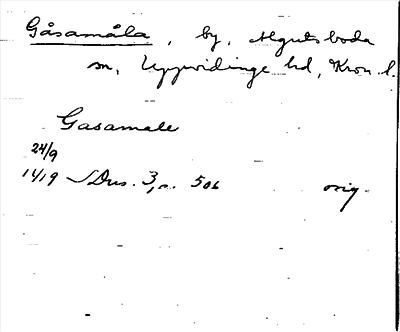 Gåsamåla, by, Algutsboda
sn, Uppvidinge hd, Kron. l.
Gasamale
24/9
1419 SDns. 3, s. 506 orig.